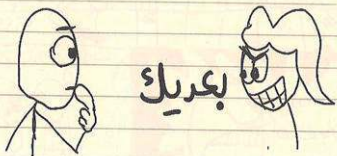 بعديك